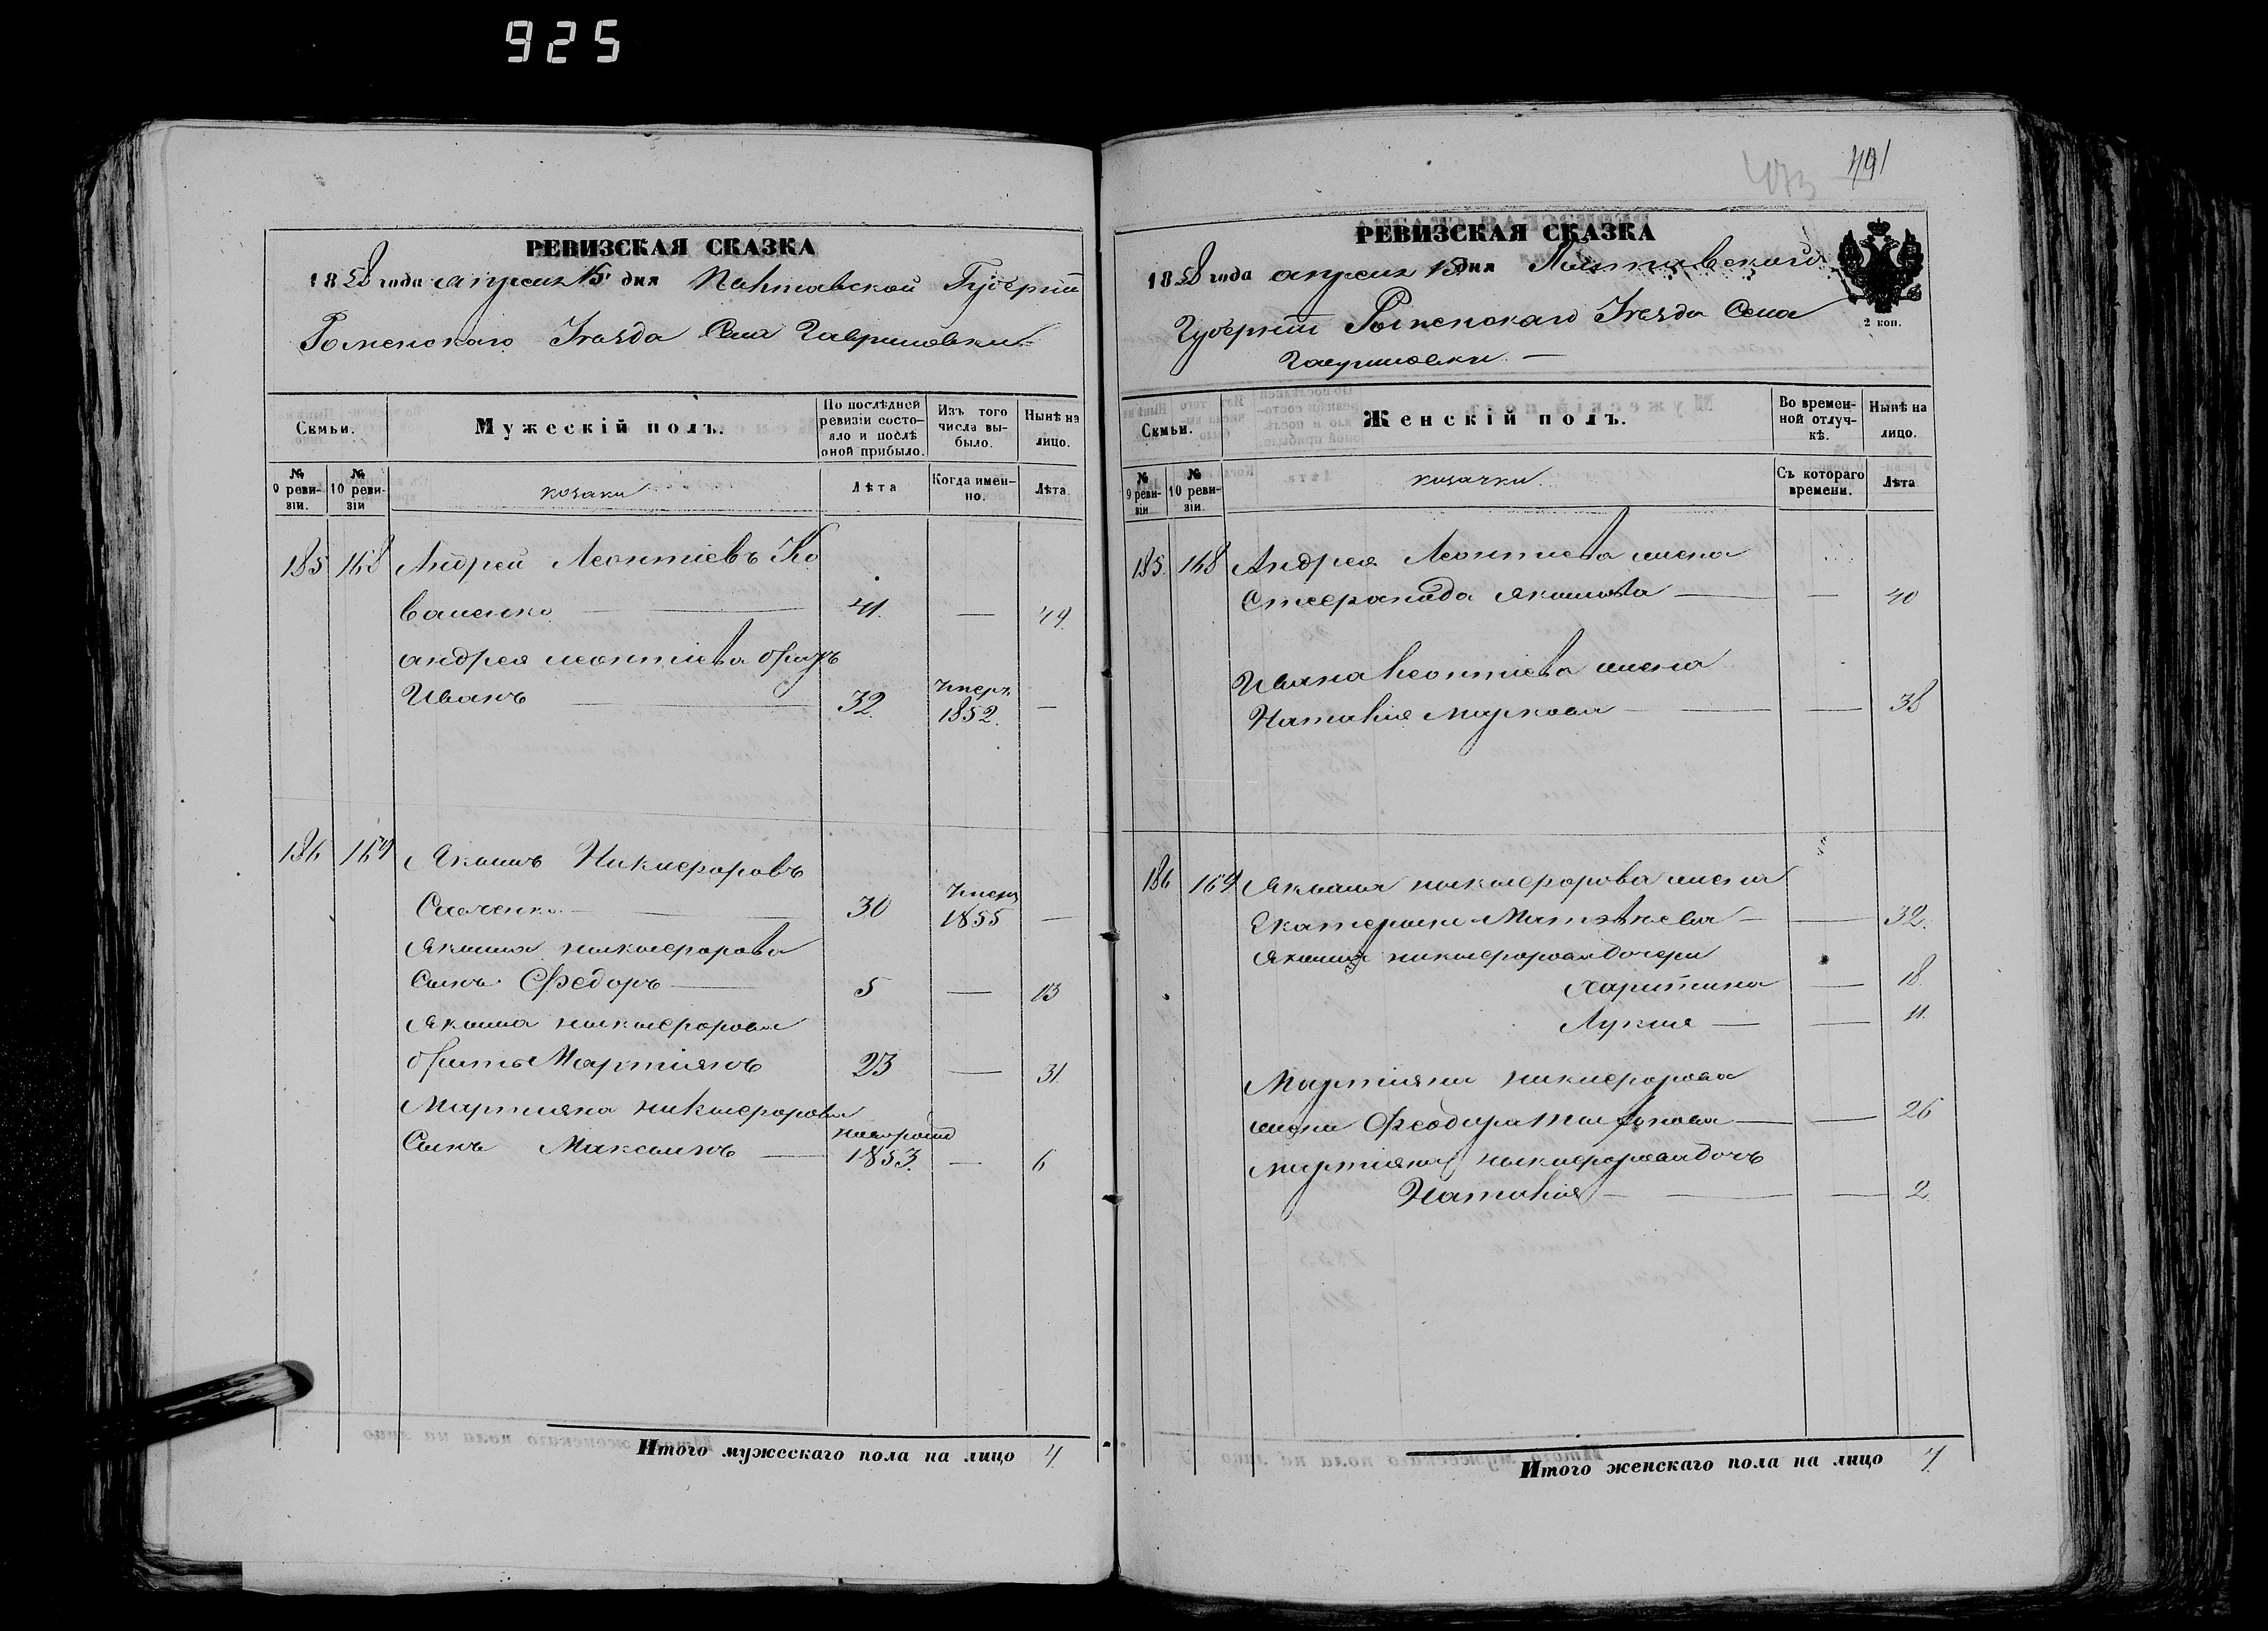 925
РЕВИЗСКАЯ СКАЗКА
1858 года апреля 15 дня Полтавской Губернии
Роменскаго Уезда Села Гавриловки
Семьи.
Мужескій полъ.
По послѣдней ревизіи состояло и послѣ оной прибыло.
Изъ того числа выбыло.
Нынѣ на лицо.
№ 9 ревизіи.
№ 10 ревизіи
козаки
Лѣта
Когда именно.
Лѣта
185 168 Андрей Леонтіевъ Ко
валенко 41. — 49.
андрея леонтіева братъ
Иванъ 32. умеръ 1852. —
186 169 Якимъ Никифоровъ
30 умеръ 1855 —
Якима никифорова
Сынъ Федоръ 5 — 13
Якима никифорова
братъ Мартіянъ 23 — 31.
Мартияна никифорова
Сынъ Максимъ 1853. — 6
Итого мужескаго пола на лицо 4
491
473
РЕВИЗСКАЯ СКАЗКА
1858 года апреля 15 дня Полтавского
Губернии Роменскаго Уезда Села
Гавриловки —
2 коп.
Семьи.
Женскій полъ.
Во временной отлучкѣ.
Нынѣ на лицо.
№ 9 ревизіи
№ 10 ревизіи.
козачки.
Съ котораго времени.
Лѣта
185. 168 Андрея Леонтиева жена
Степанида Якимова — — 40
Ивана Леонтиева жена
Наталия Маркова — — 38
186 169 Якима никифорова жена
Екатерина Матвѣева — — 32.
Якима никифорова дочери
Харитина — 18.
Лукия — — 11.
Мартіяна никифорова
жена Феодора — — 26
мартіяна никифорова дочь
Наталия — — 2.
Итого женскаго пола на лицо 7.